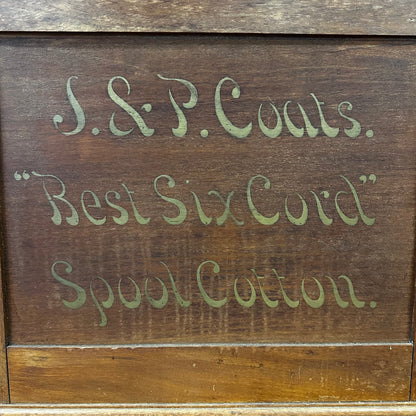 J. & P. Coats.
"Best Six Cord"
Spool Cotton.